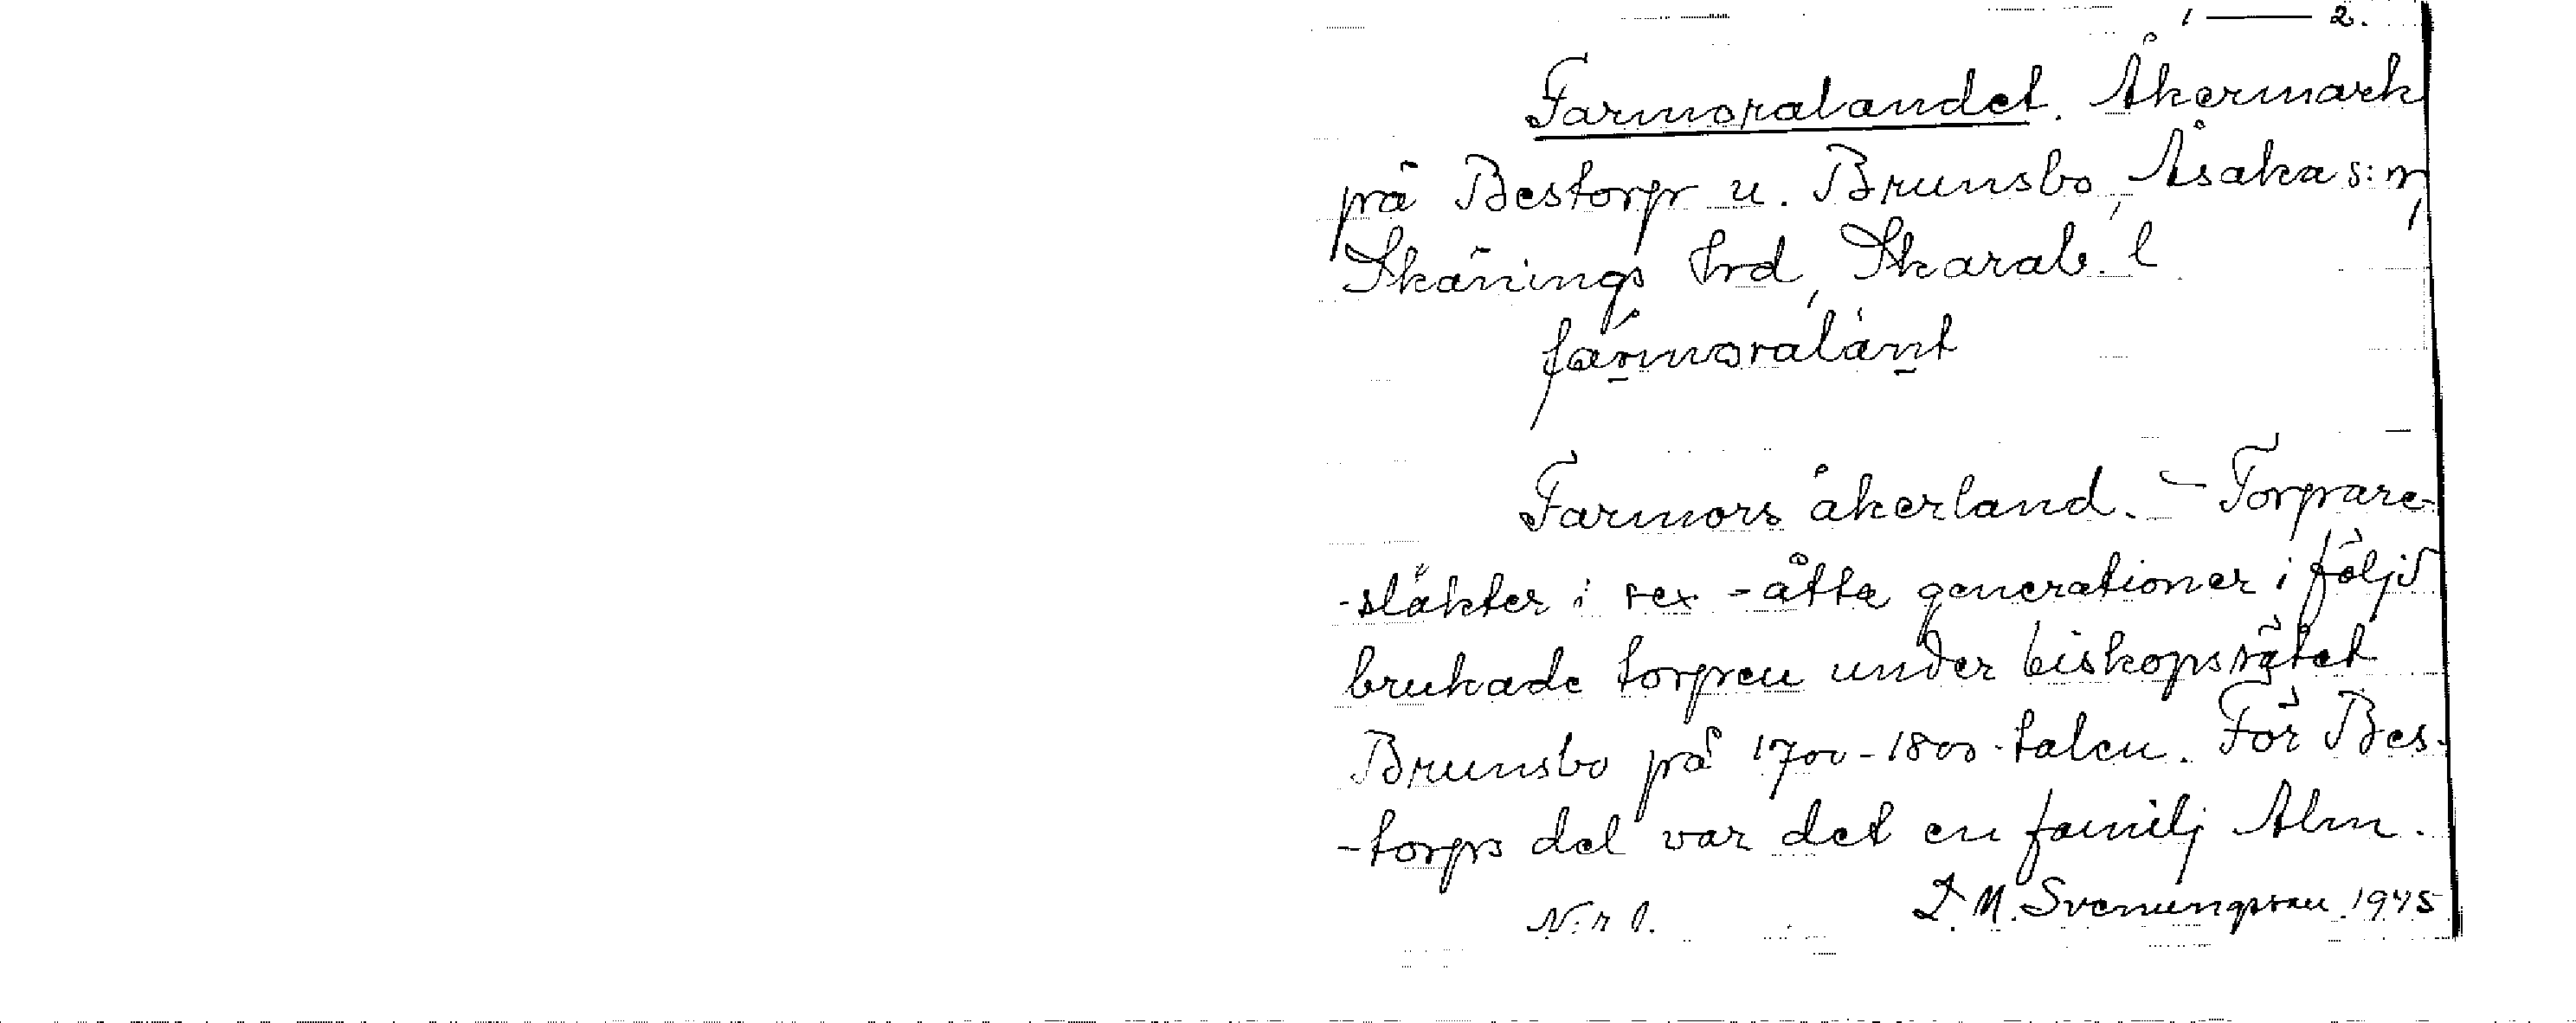 1 — 2.
Farmoralandet. Åkermark
på Bestorp u. Brunsbo, Åsaka s:n,
Skånings hrd, Skarab. l.
farmoralant
Farmors åkerland. – Torpare-
-släkter i sex-åtta generationer i följd
brukade torpen under biskopssätet
Brunsbo på 1700-1800-talen. För Bes-
-torps del var det en familj Alm.
N:r 1. L. M. Svenungsson 1945